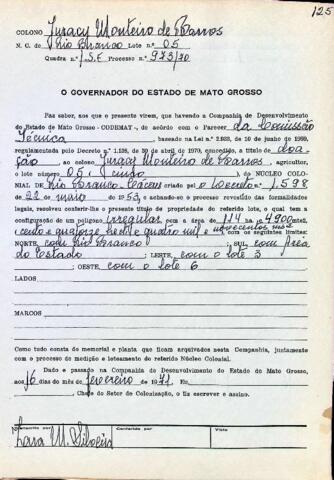 125
COLONO Juracy Monteiro de Barros
N. C. de Rio Branco Lote n.º 05
Quadra n.º 1.S.E Processo n.º 973/70
O GOVERNADOR DO ESTADO DE MATO GROSSO
Faz saber, aos que o presente virem, que havendo a Companhia de Desenvolvimento
do Estado de Mato Grosso - CODEMAT-, de acôrdo com o Parecer da Comissão
Técnica baseado na Lei n.º 2.933, de 10 de junho de 1969,
regulamentada pelo Decreto n.º 1.138, de 30 de abril de 1970, concedido, a título de doa-
ção ao colono Juracy Monteiro de Barros, agricultor,
o lote número 05 (cinco) do NÚCLEO COLO-
NIAL DE Rio Branco-Cáceres criado pelo Decreto n.º 1.598
de 22 maio 1953, e achando-se o processo revestido das formalidades
legais, resolveu conferir-lhe o presente título de propriedade do referido lote, o qual tem a
configuração de um polígono irregular com a área de 114 ha. 4900 mts²,
cento e quatorze hect. e quatro mil e novecentos mts² com os seguintes limites:
NORTE, com Rio Branco ; SUL, com Área
do Estado ; LESTE, com o lote 3
; OESTE, com o lote 6
LADOS
MARCOS
Como tudo consta do memorial e planta que ficam arquivados nesta Companhia, juntamente
com o processo de medição e loteamento do referido Núcleo Colonial.
Dado e passado na Companhia de Desenvolvimento do Estado de Mato Grosso,
aos 16 dias do mês de fevereiro de 1971. Eu,
Chefe do Setor de Colonização, o fiz escrever e assino.
Transcrito por
Conferido por
Visto